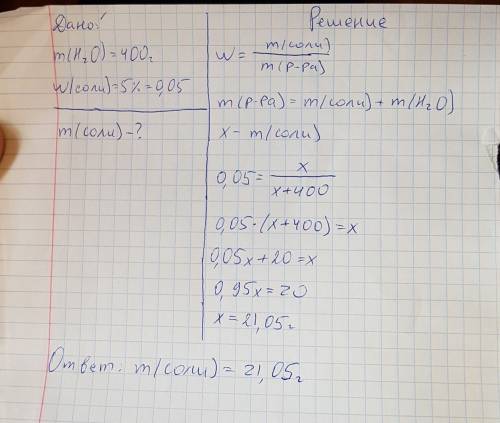 Дано:
m(H₂O)=400г
w(соли)=5%=0,05
m(соли)-?
Решение
w = m(соли) / m(р-ра)
m(р-ра)=m(соли)+m(H₂O)
x - m(соли)
0,05 = x / x+400
0,05·(x+400)=x
0,05x+20=x
0,95x=20
x=21,05г
Ответ: m(соли) = 21,05г